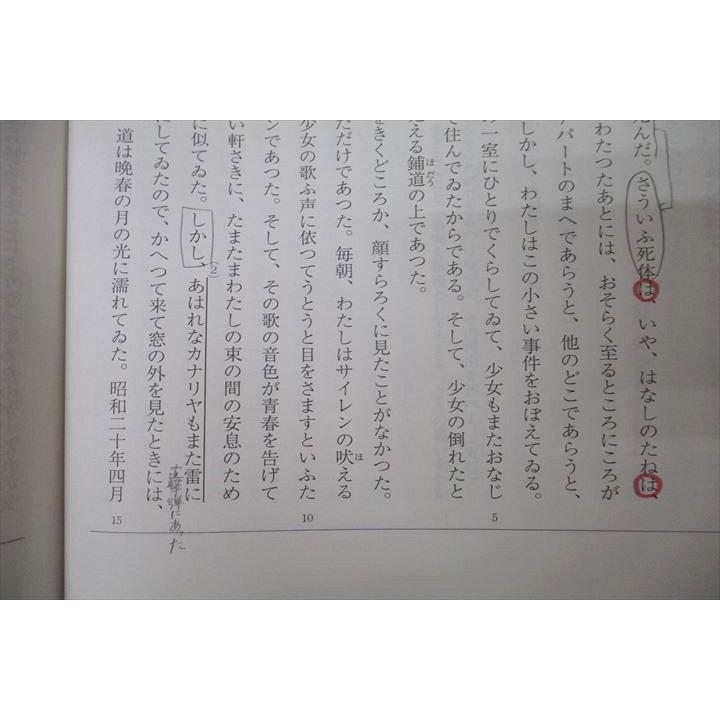 んだ。さういふ死体は、いや、はなしのたねは、
わたつたあとには、おそらく至るところにころが
パートのまへであらうと、他のどこであらうと、
しかし、わたしはこの小さい事件をおぼえてゐる。
一室にひとりでくらしてゐて、少女もまたおなじ
5
で住んでゐたからである。そして、少女の倒れたと
える鋪道の上であつた。
ほだう
をきくどころか、顔すらろくに見たことがなかつた。
だだけであつた。毎朝、わたしはサイレンの吠える
ほ
少女の歌ふ声に依つてうとうと目をさますといふた
10
ンであつた。そして、その歌の音色が青春を告げて
い軒さきに、たまたまわたしの束の間の安息のため
に似てゐた。しかし、あはれなカナリヤもまた雷に
(2)
してゐたので、かへつて来て窓の外を見たときには、
道は晩春の月の光に濡れてゐた。昭和二十年四月
15
にあった